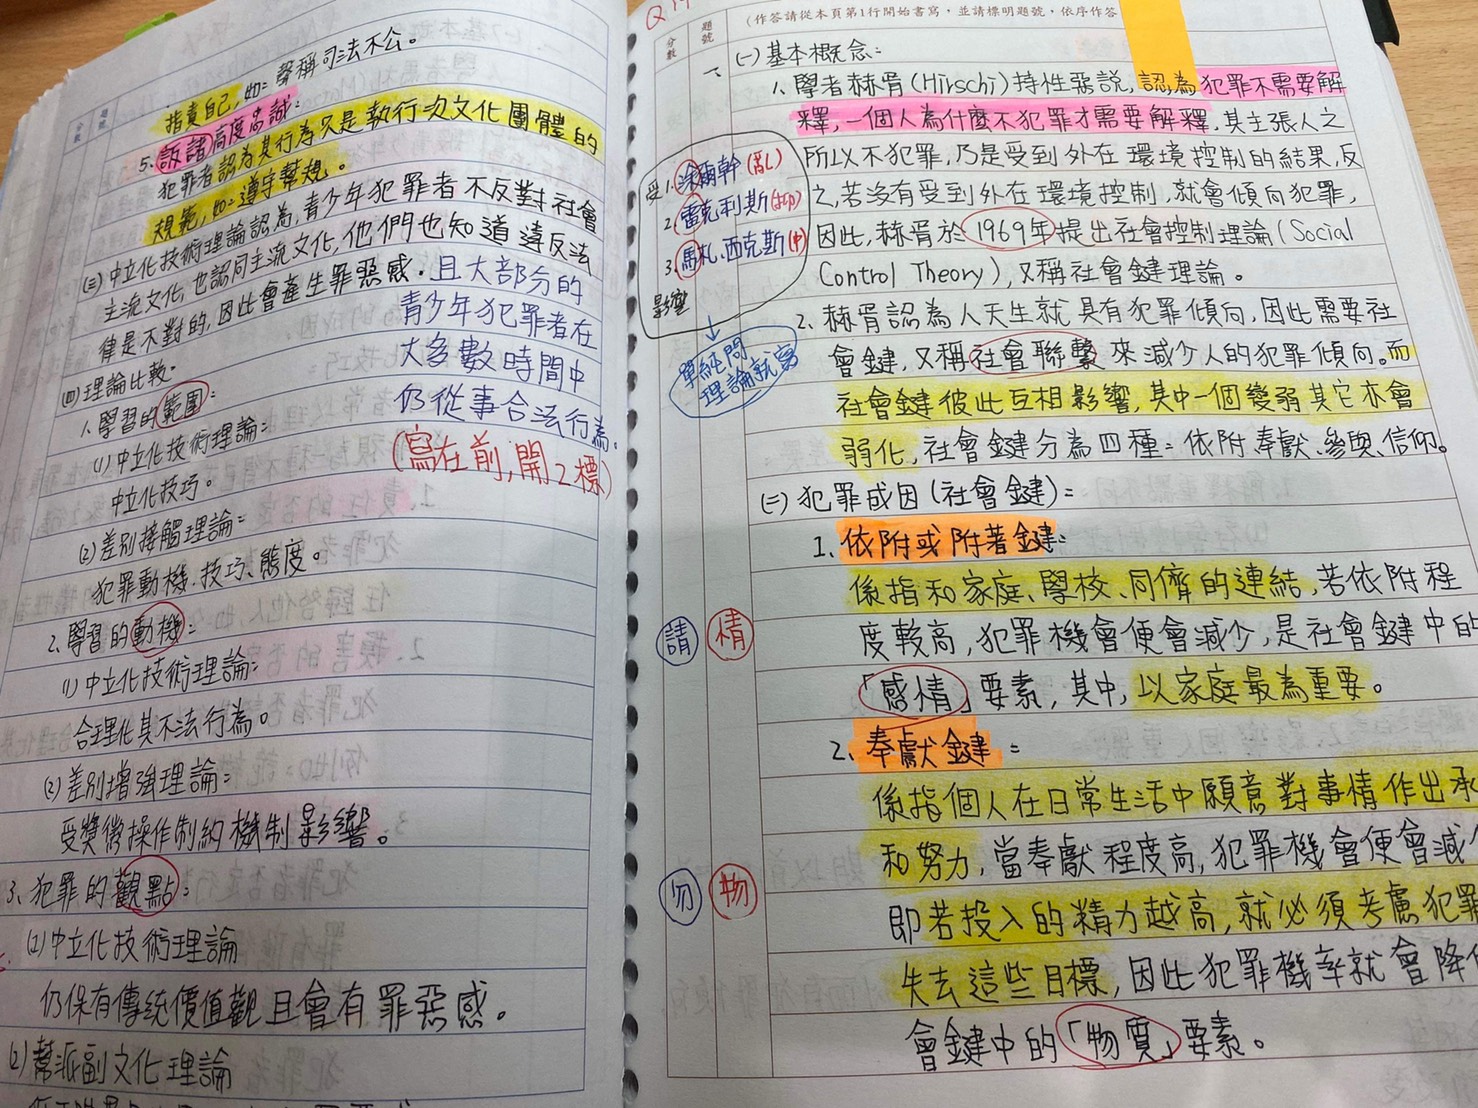 指責自己,如:聲稱司法不公。
5.訴諸高度忠誠:
犯罪者認為其行為只是執行次文化團體的
規範,如:遵守幫規。
(三)中立化技術理論認為,青少年犯罪者不反對社會
主流文化,也認同主流文化,他們也知道違反法
律是不對的,因此會產生罪惡感.且大部分的
青少年犯罪者在
大多數時間中
仍從事合法行為.
(寫在前,開2標)
(四)理論比較.
1.學習的範圍:
(1)中立化技術理論:
中立化技巧。
(2)差別接觸理論:
犯罪動機、技巧、態度。
2.學習的動機:
(1)中立化技術理論:
合理化其不法行為。
(2)差別增強理論:
受獎懲操作制約機制影響。
3.犯罪的觀點:
(1)中立化技術理論
仍保有傳統價值觀且會有罪惡感。
(2)幫派副文化理論
題號
分數
(作答請從本頁第1行開始書寫,並請標明題號,依序作答
一、
(一)基本概念:
1.學者赫胥(Hirschi)持性惡說,認為犯罪不需要解
釋,一個人為什麼不犯罪才需要解釋,其主張人之
所以不犯罪,乃是受到外在環境控制的結果,反
之,若沒有受到外在環境控制,就會傾向犯罪,
因此,赫胥於1969年提出社會控制理論(Social
Control Theory),又稱社會鍵理論。
受1.涂爾幹(亂)
2.雷克利斯(抑)
3.馬札、西克斯(中)
影響
單純問
理論就寫
2.赫胥認為人天生就具有犯罪傾向,因此需要社
會鍵,又稱社會聯繫來減少人的犯罪傾向。而
社會鍵彼此互相影響,其中一個變弱其它亦會
弱化,社會鍵分為四種:依附、奉獻、參與、信仰。
(二)犯罪成因(社會鍵):
1.依附或附著鍵:
係指和家庭、學校、同儕的連結,若依附程
度較高,犯罪機會便會減少,是社會鍵中的
請 情
「感情」要素,其中,以家庭最為重要。
2.奉獻鍵:
係指個人在日常生活中願意對事情作出承
和努力,當奉獻程度高,犯罪機會便會減
勿 物
即若投入的精力越高,就必須考慮犯罪
失去這些目標,因此犯罪機率就會降
會鍵中的「物質」要素。